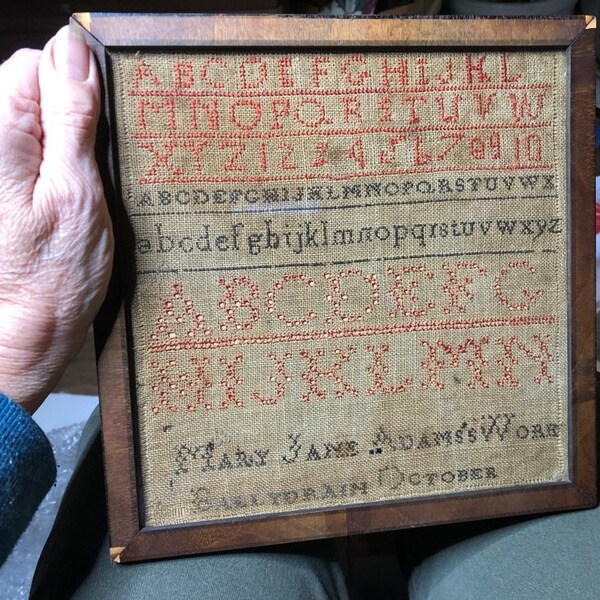 ABCDEFGHIJKL
MNOPQRSTUVW
XYZ12345678910
ABCDEFGHIJKLMNOPQRSTUVWX
abcdefghijklmnopqrstuvwxyz
ABCDEFG
HIJKLMN
MARY JANE ADAMSS WORK
BALLYDRAIN OCTOBER